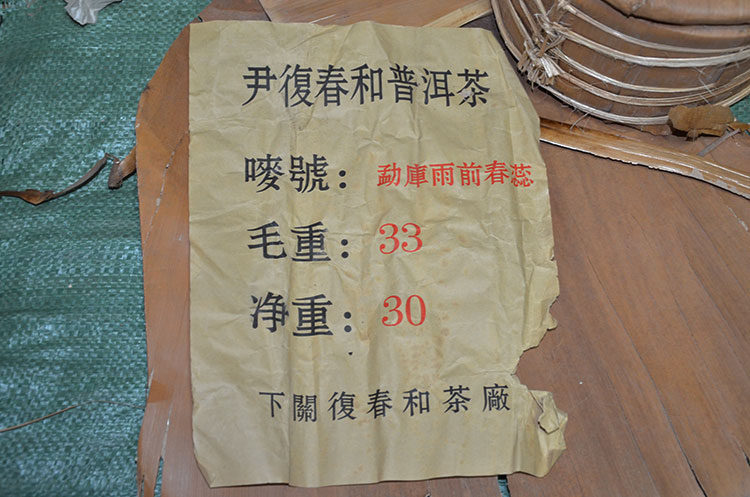 尹復春和普洱茶
嘜號：勐庫雨前春蕊
毛重：33
净重：30
下關復春和茶廠